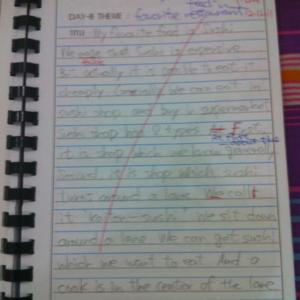 DAY-8 THEME : favorite restaurant
TITLE My favorite food - Sushi
We sushi is expensive
But actually it is to eat it
cheaply. We can eat in
sushi shop and buy supermarket
sushi shop has 2 types. First,
it is shop which we know
Second, it is shop which sushi
turns around a lane. We call
it "kaiten-sushi". We sit down
around a lane. We can get sushi
which we want to eat. And a
cook is in the center of the lane